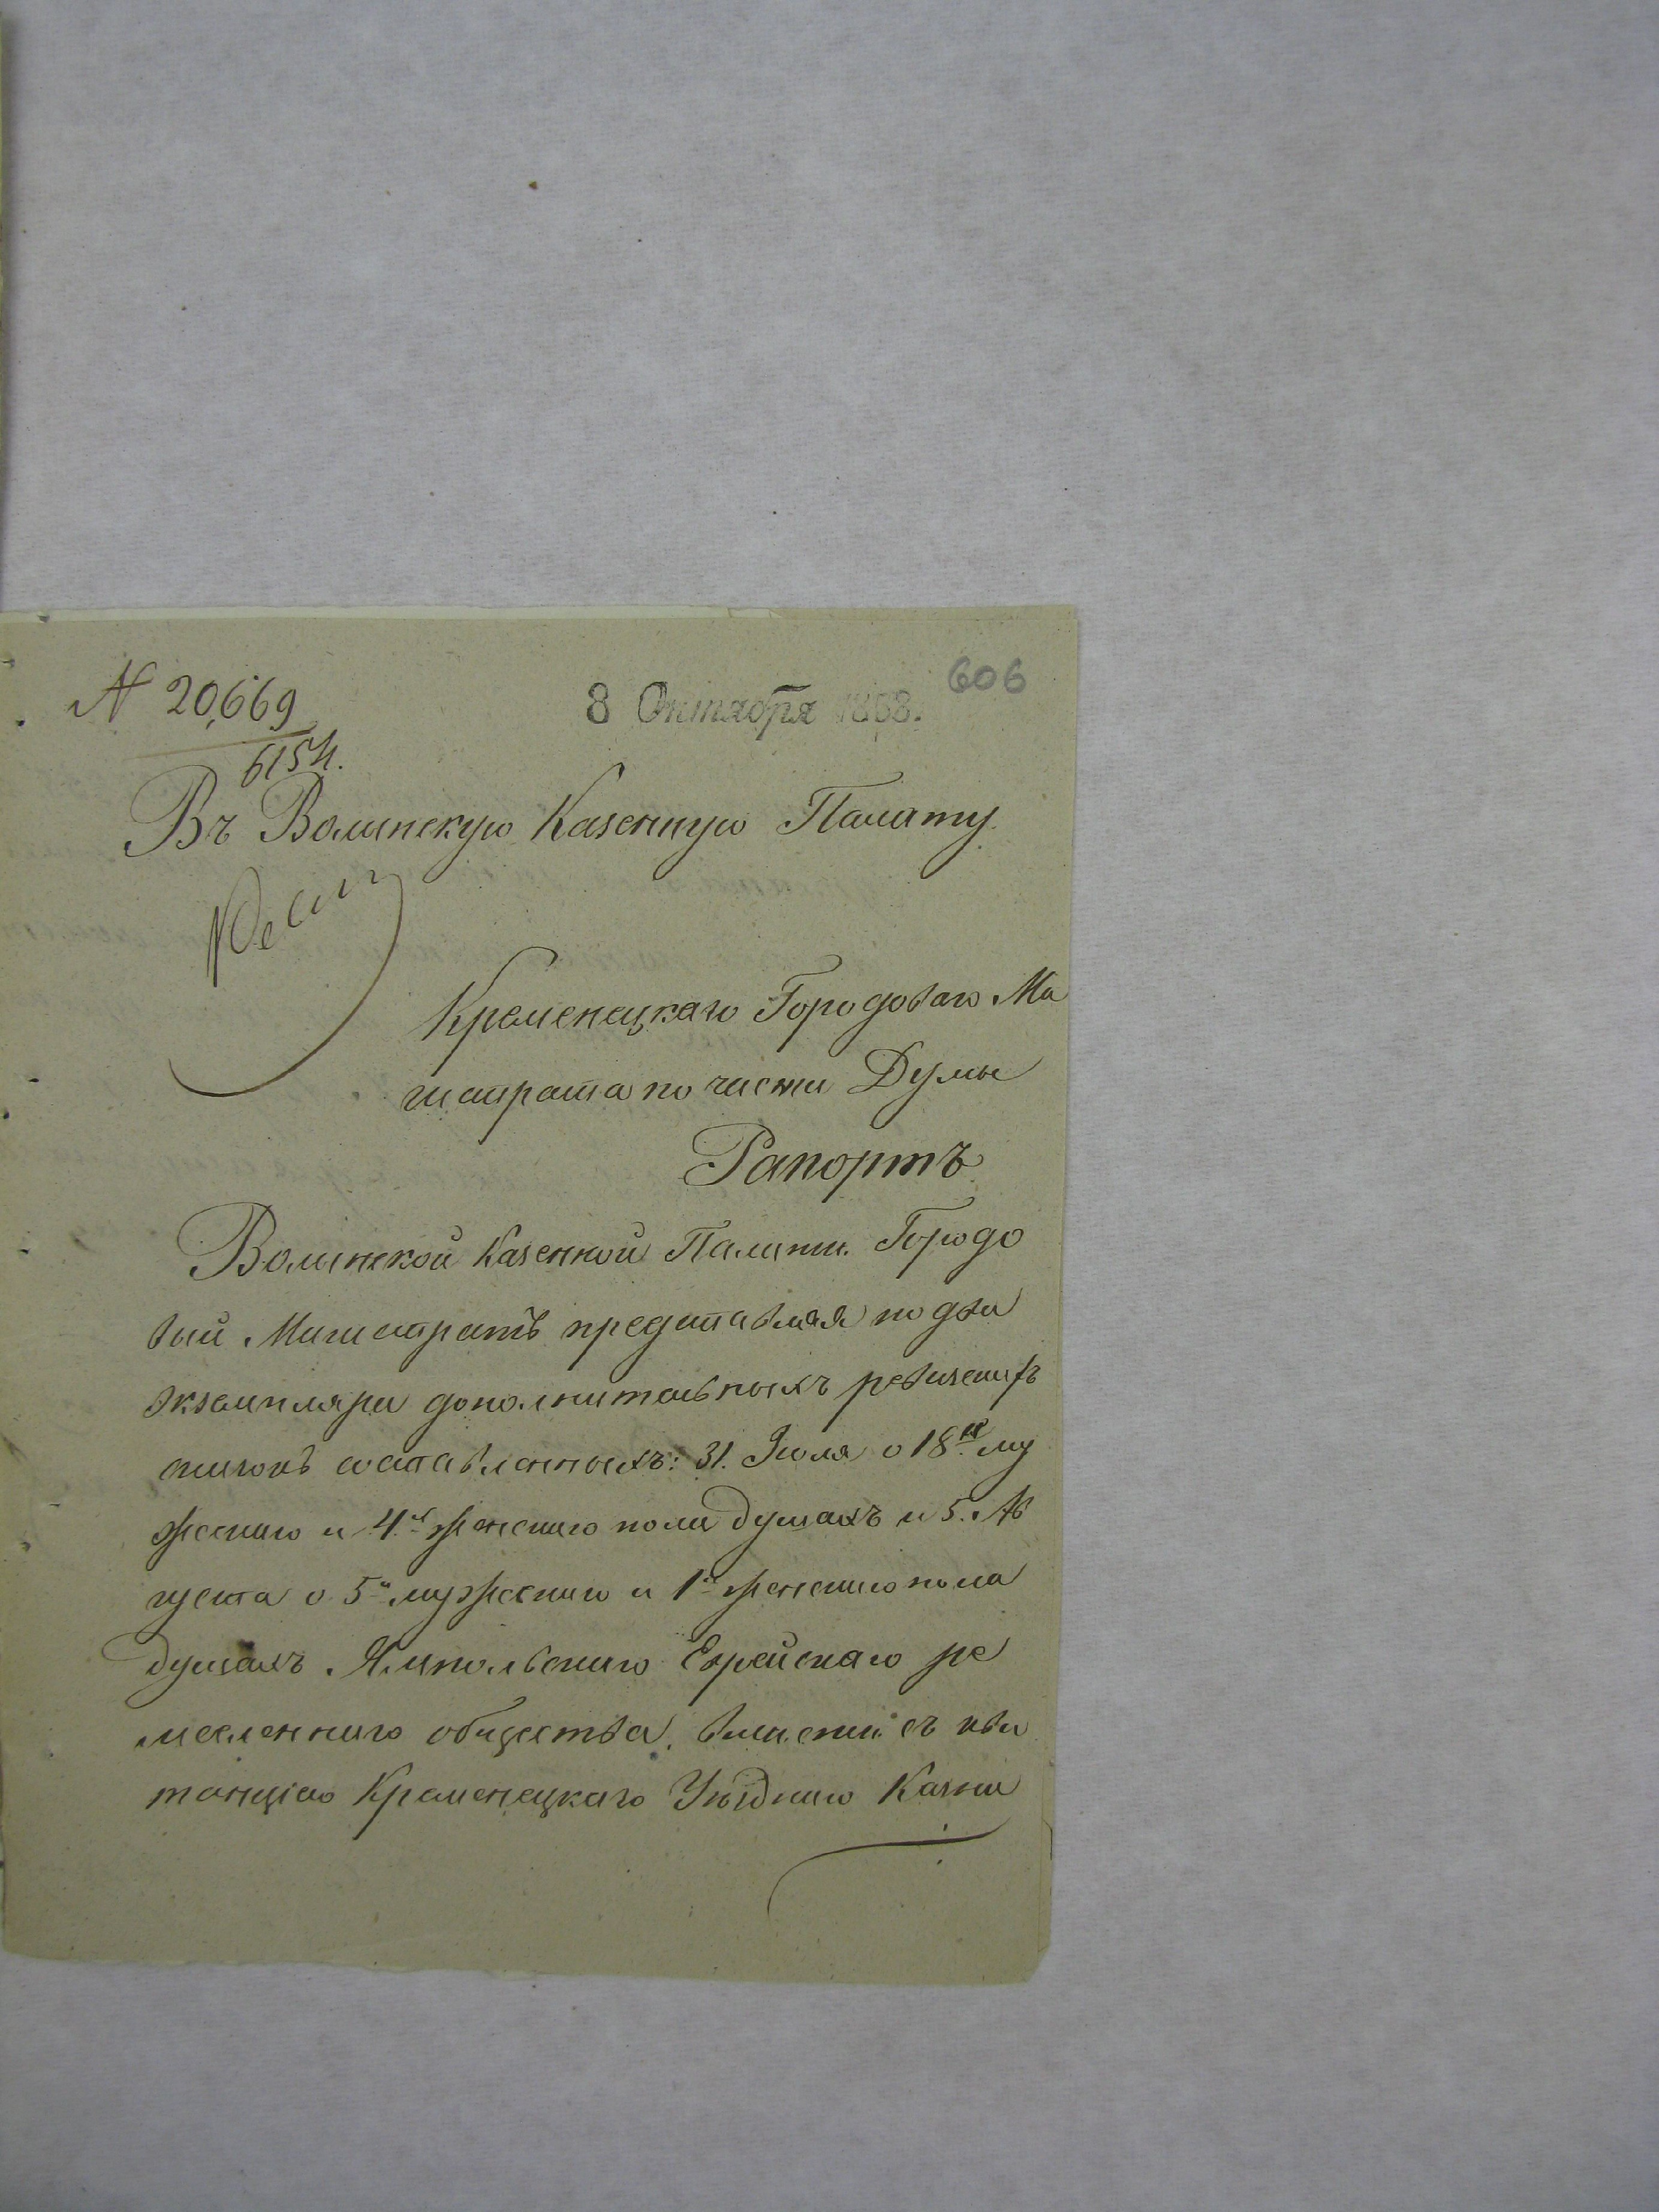 606
№ 20,669
615 ч.
8 Октября 1868.
Въ Волынскую Казенную Палату
Кременецкаго Городоваго Ма
гистрата по части Думы
Рапортъ
Волынской Казенной Палаты. Городо
вый Магистратъ представляя по два
экземпляра дополнительныхъ ревизскихъ
сказокъ составленныхъ: 31. Іюля о 18ти му
жескаго и 4хъ женскаго пола душахъ и 5. Ав
густа о 5и мужескаго и 1й женскаго пола
душахъ Ямпольскаго Еврейскаго ре
месленнаго общества, вмѣстѣ съ кви
танціею Кременецкаго Уѣзднаго Казна